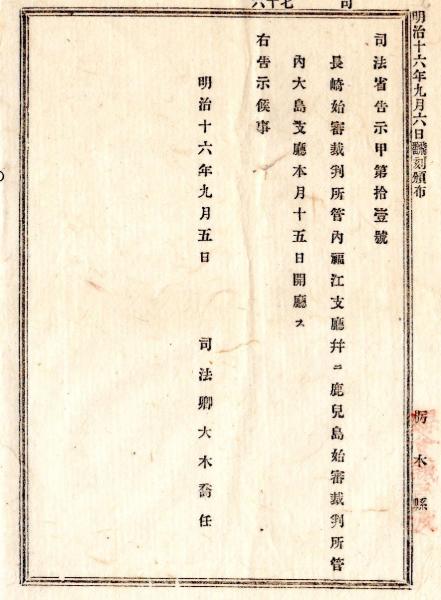 明治十六年九月六日飜刻頒布
栃木縣
司法省告示甲第拾壹號
長崎始審裁判所管內福江支廳幷ニ鹿兒島始審裁判所管
內大島支廳本月十五日開廳ス
右告示候事
明治十六年九月五日
司法卿大木喬任
司
七十六